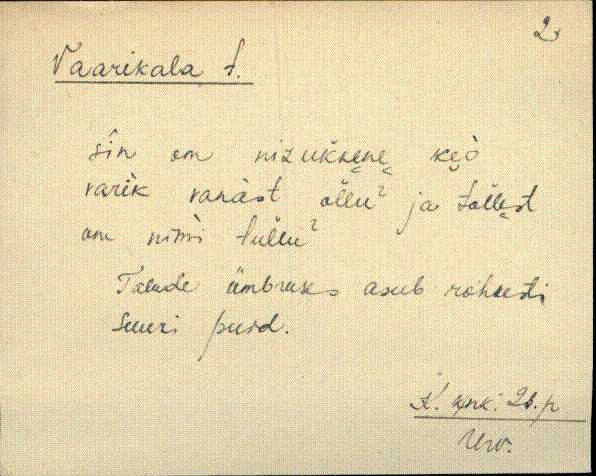 2.
Vaarikala t.
sin om nizukšene keo
varik vanast ollu² ja tollest
om nimi tullu²
Talude ümbruses asub rohkesti
suuri puid.
Urv.